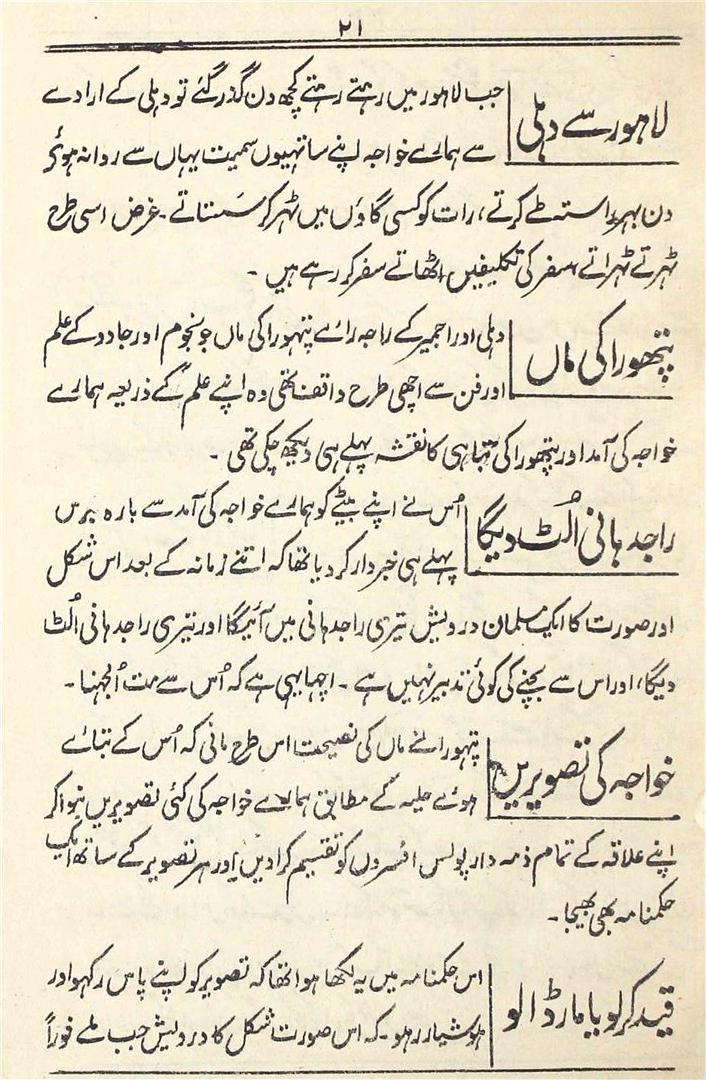 ۲۱
لاہور سے دہلی
جب لاہور میں رہتے رہتے کچھ دن گذر گئے تو دہلی کے ارادے
سے ہمارے خواجہ اپنے ساتھیوں سمیت یہاں سے روانہ ہوئے
دن بہر راستہ طے کرتے، رات کو کسی گاؤں میں ٹہر کر سستاتے ۔ غرض اسی طرح
ٹہرتے ٹہراتے سفر کی تکلیفیں اٹھاتے سفر کر رہے ہیں ۔
پتھورا کی ماں
دہلی اور اجمیر کے راجہ رائے پتہورا کی ماں جو نجوم اور جادو کے علم
اور فن سے اچھی طرح واقف تھی وہ اپنے علم کے ذریعہ ہمارے
خواجہ کی آمد اور پتھورا کی تباہی کا نقشہ پہلے ہی دیکھ چکی تھی ۔
راجدہانی اُلٹ دیگا
اُس نے اپنے بیٹے کو ہمارے خواجہ کی آمد سے بارہ برس
پہلے ہی خبردار کر دیا تھا کہ اتنے زمانہ کے بعد اس شکل
اور صورت کا ایک مسلمان درویش تیری راجدہانی میں آئیگا اور تیری راجدہانی اُلٹ
دیگا، اور اس سے بچنے کی کوئی تدبیر نہیں ہے ۔ اچہا یہی ہے کہ اُس سے مت اُلجہنا ۔
خواجہ کی تصویریں
پتہورا نے ماں کی نصیحت اس طرح مانی کہ اُس کے بتائے
ہوئے حلیہ کے مطابق ہمارے خواجہ کی کئی تصویریں بنوا کر
اپنے علاقہ کے تمام ذمہ دار پولس افسروں کو تقسیم کرا دیں اور ہر تصویر کے ساتھ ایک
حکمنامہ بھی بھیجا ۔
قید کر لو یا مار ڈالو
اس حکمنامہ میں یہ لکھا ہوا تھا کہ تصویر کو اپنے پاس رکہو اور
ہوشیار رہو ۔ کہ اس صورت شکل کا درویش جب ملے فوراً